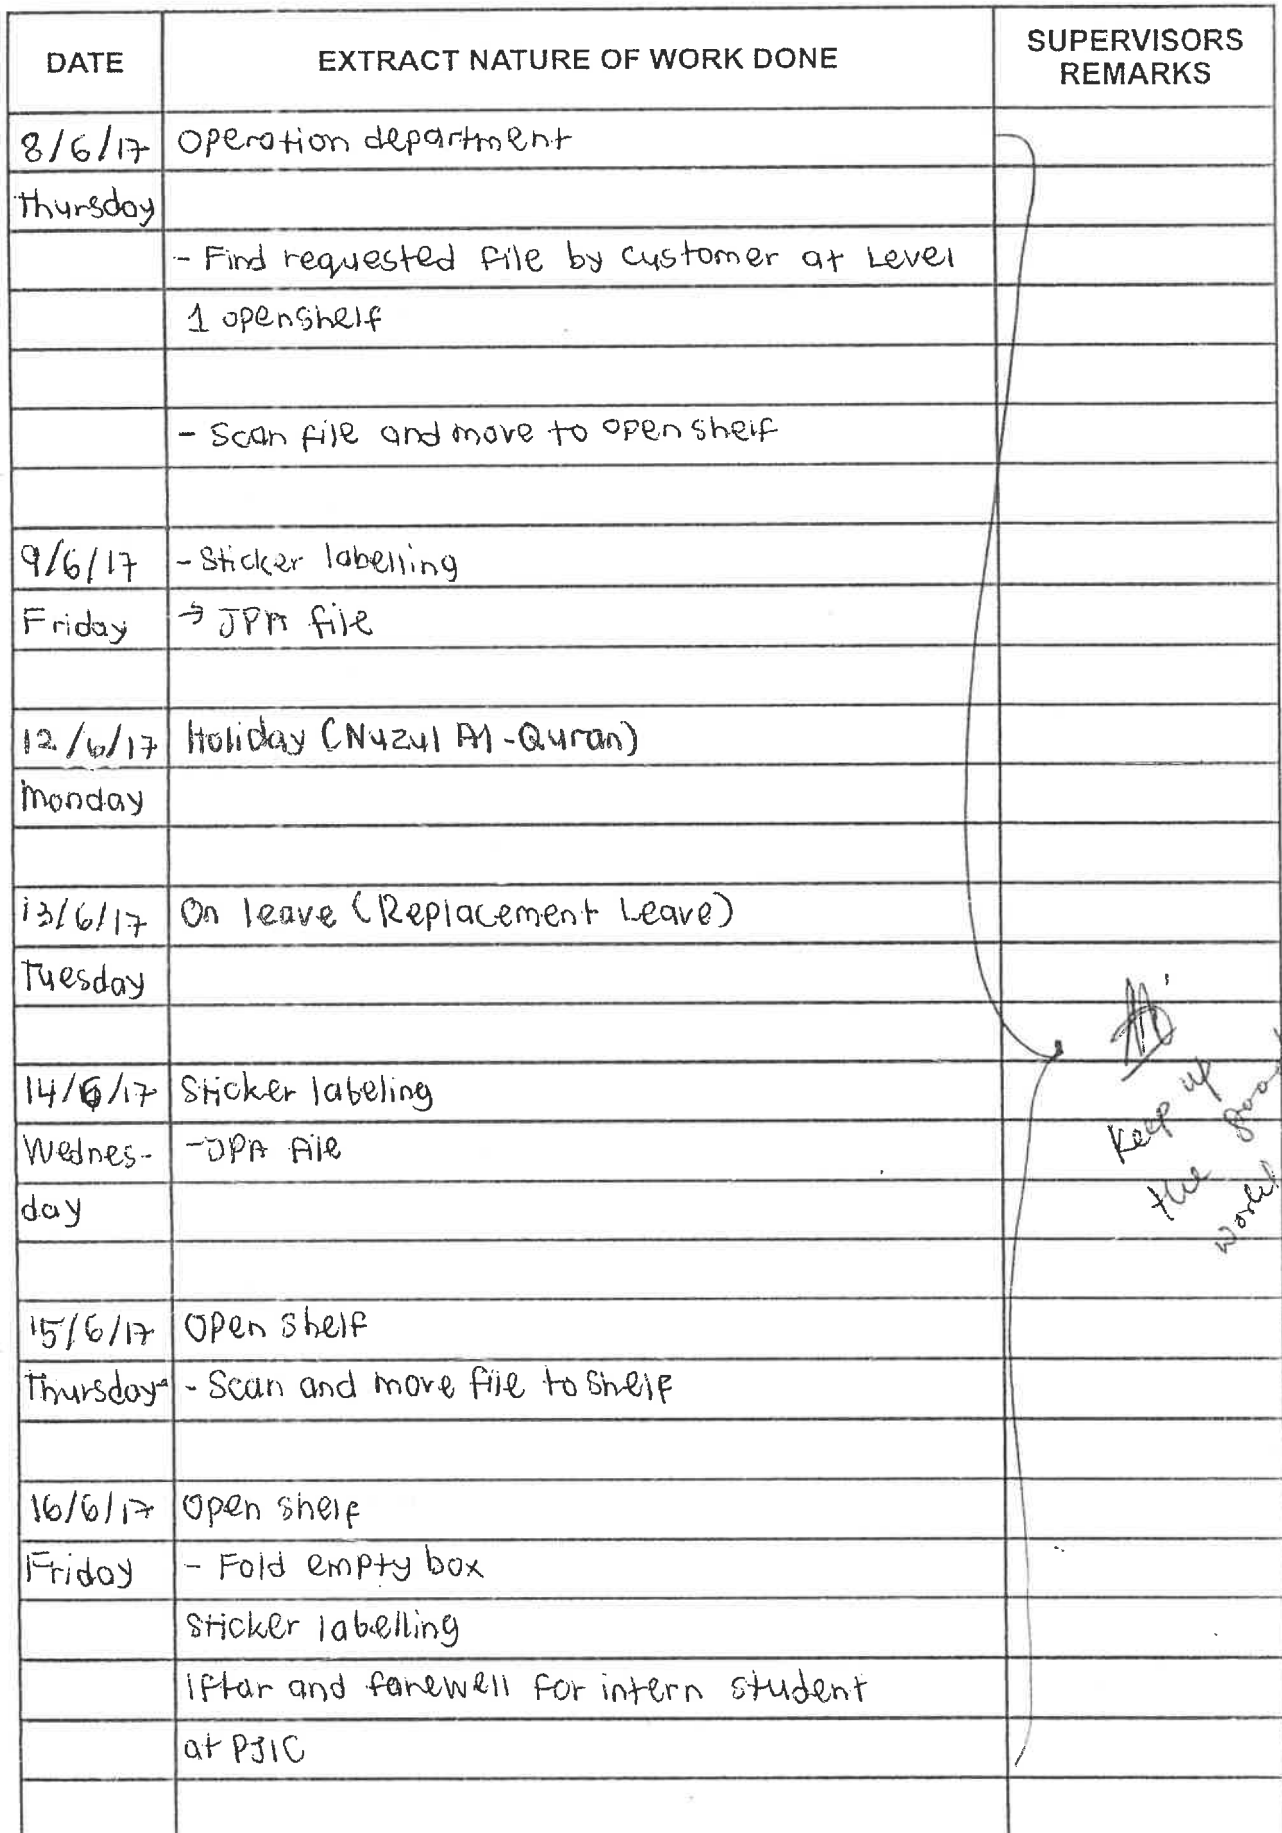 DATE EXTRACT NATURE OF WORK DONE SUPERVISORS REMARKS
8/6/17 Operation department
Thursday
- Find requested file by customer at Level
1 openshelf
- Scan file and move to open shelf
9/6/17 - Sticker labelling
Friday → JPA file
12/6/17 Holiday (Nuzul Al-Quran)
Monday
13/6/17 On leave (Replacement Leave)
Tuesday
14/6/17 Sticker labeling
Wednes- - JPA file
day
Keep up
the good
work
15/6/17 Open shelf
Thursday - Scan and move file to shelf
16/6/17 Open shelf
Friday - Fold empty box
Sticker labelling
Iftar and farewell for intern student
at